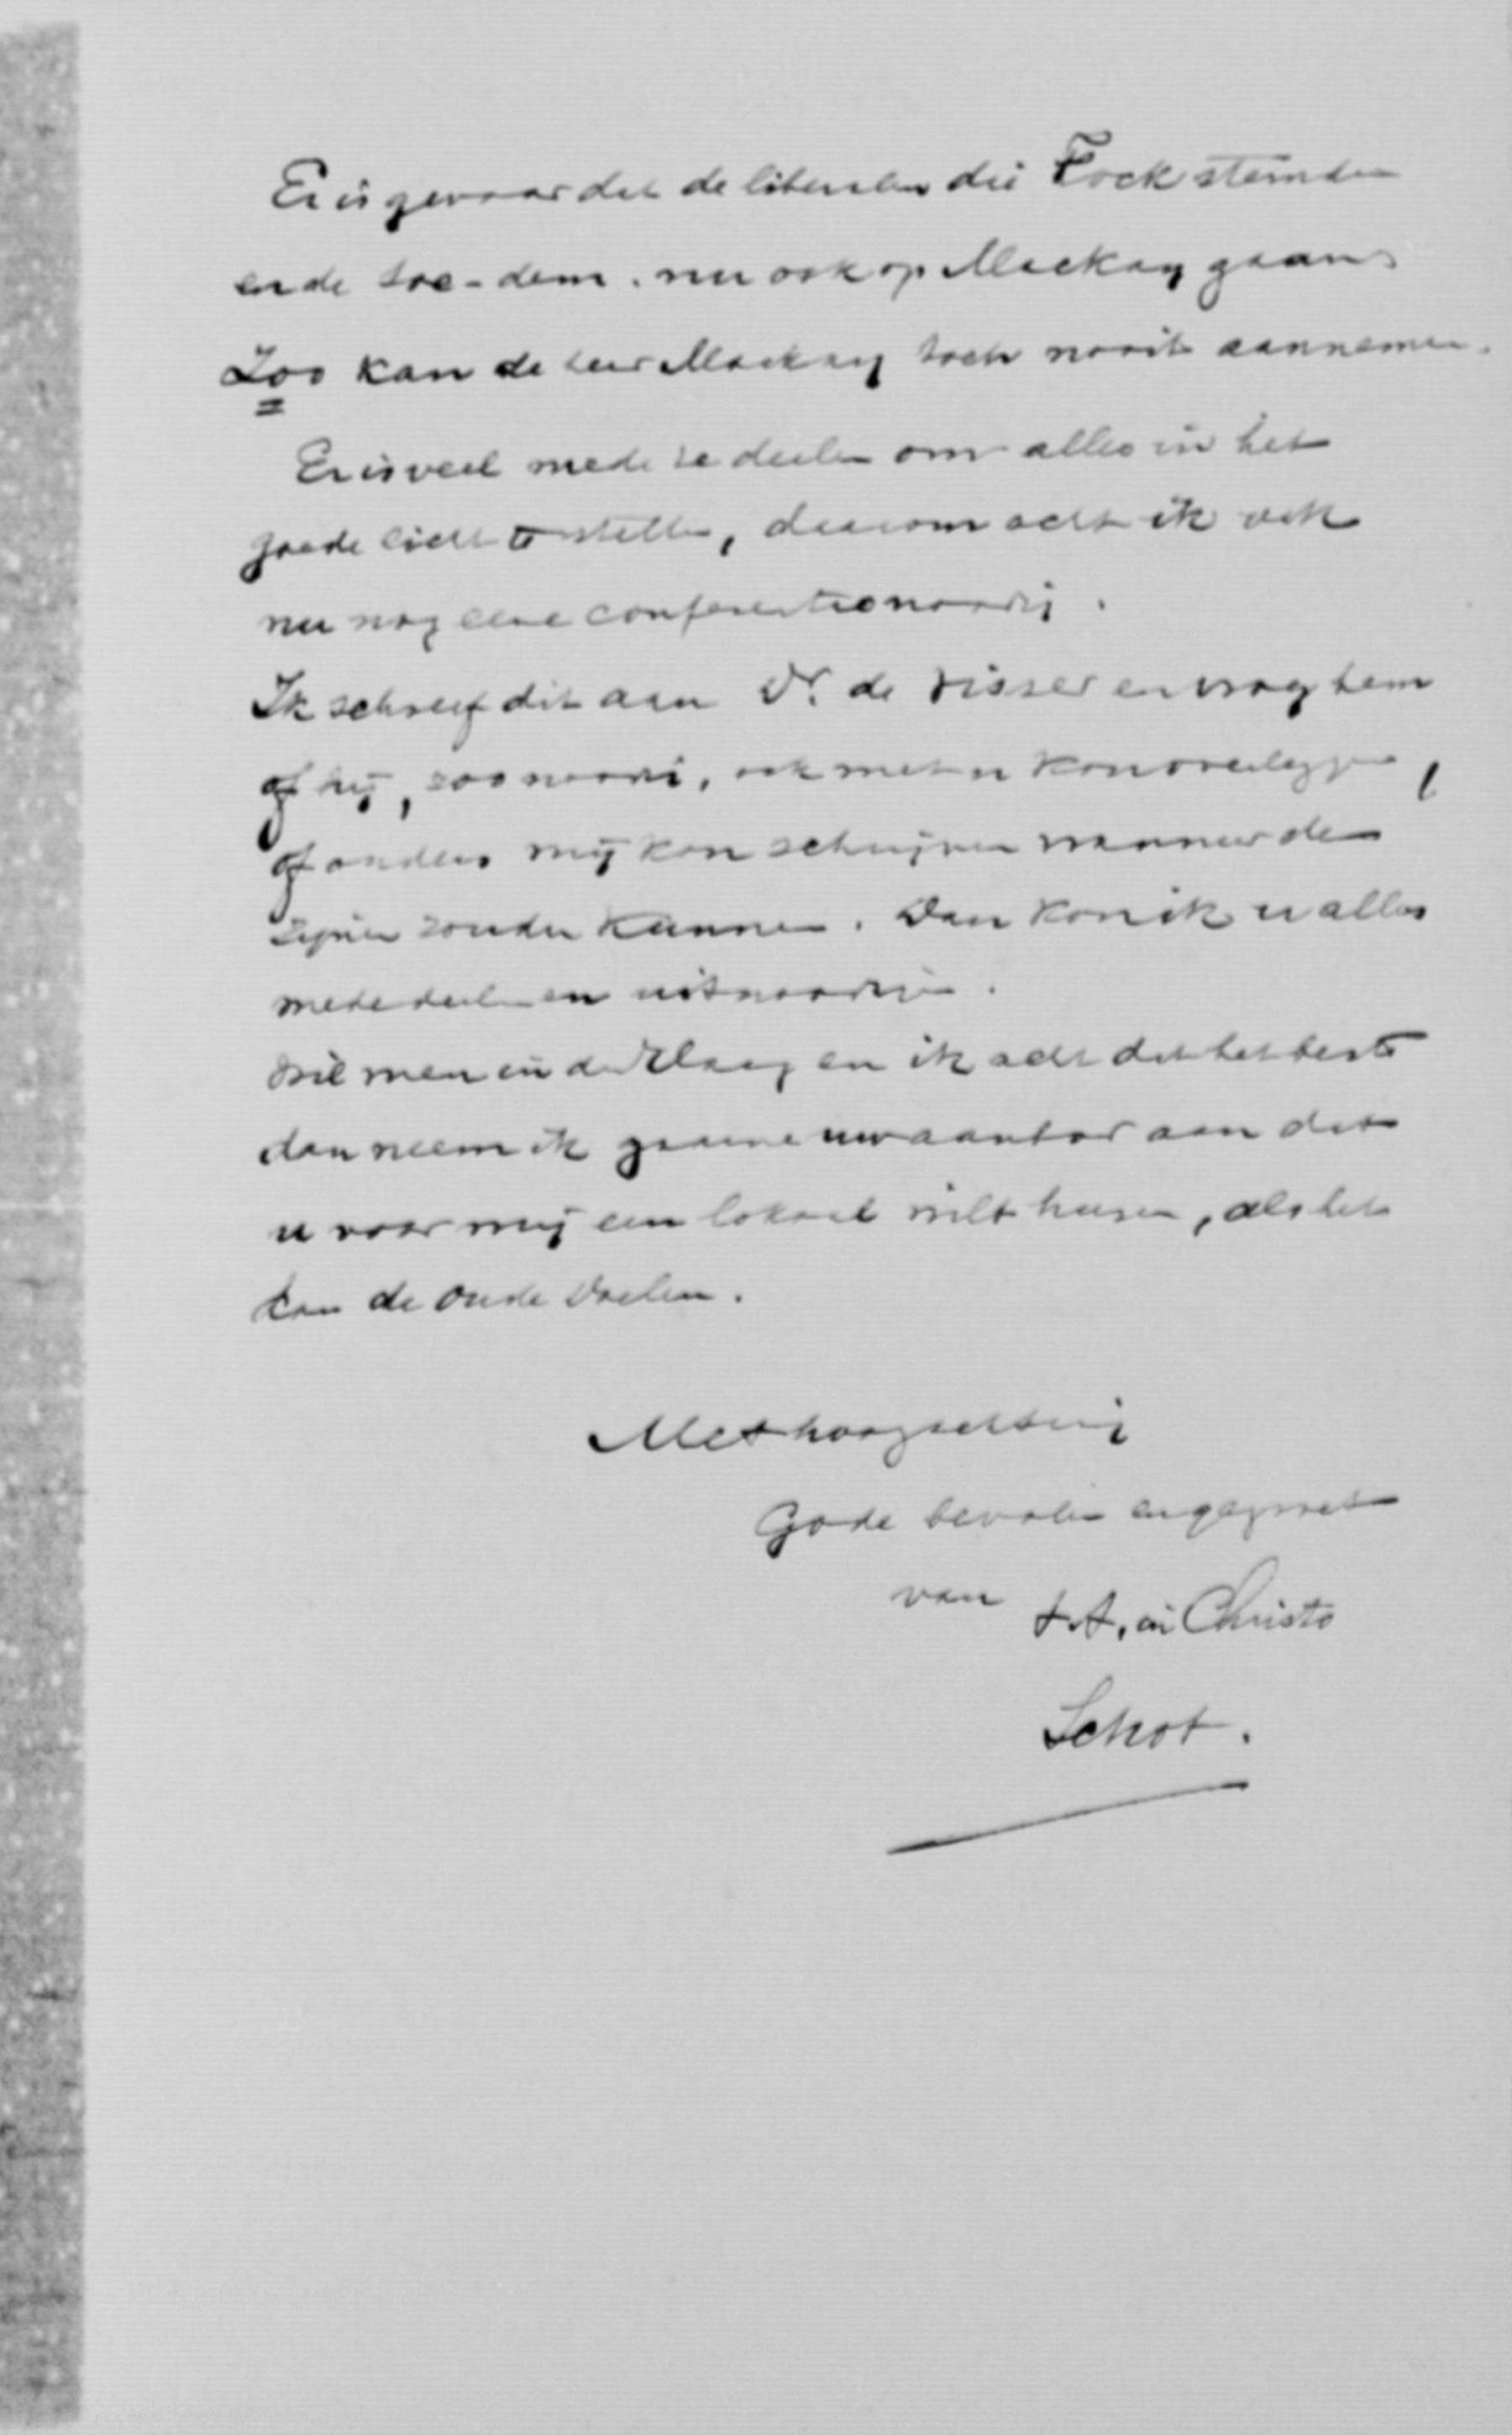 Er is gevaar dat de liberalen die Fock stemden
en de soc-dem. nu ook op Mackay gaan
Zoo kan de heer Mackay toch nooit aannemen.
Er is veel mede te deelen om alles in het
goede licht te stellen, daarom acht ik ook
nu nog eene conferentie noodig.
Ik schreef dit aan Dr. de Visser en vroeg hem
of hij, zoo noodig, ook met u kon overleggen,
of anders mij kon schrijven wanneer de
zijnen zouden kunnen. Dan kon ik u alles
mededeelen en uitnoodigen.
Wil men in den Haag en ik acht dat het beste
dan neem ik gaarne uw aanbod aan dat
u voor mij een lokaal wilt huren, als het
kan de oude Doelen.
Met hoogachting
Gode bevolen en gegroet
van t.t. in Christo
Schot.